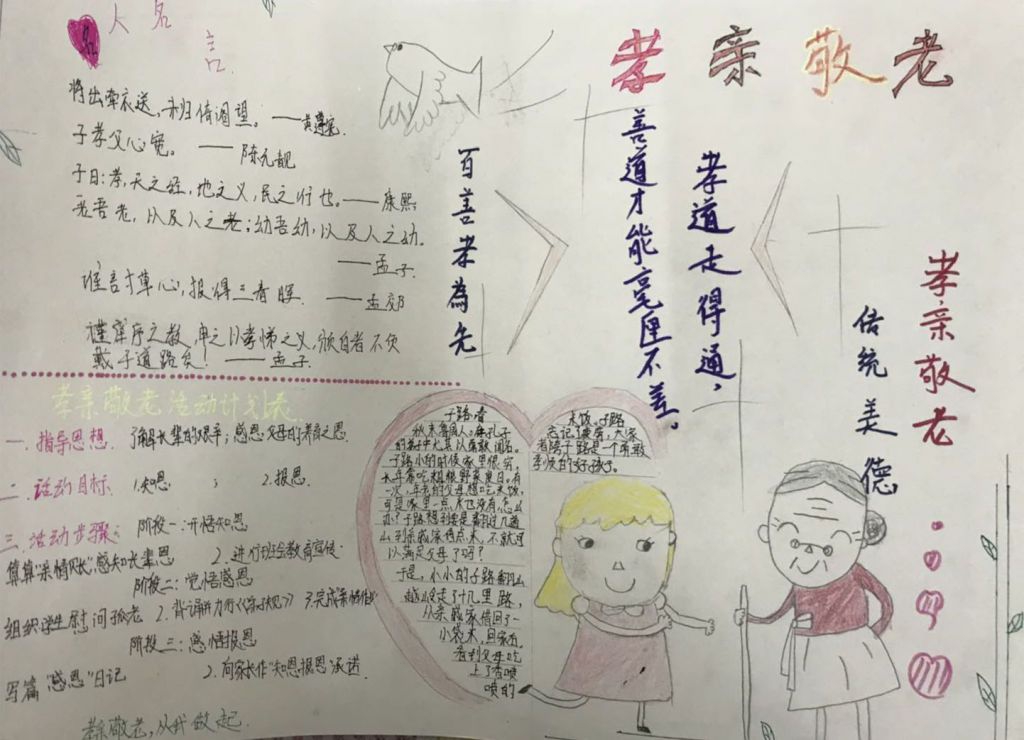 名人名言
将出牵衣送,未归倚阁望。——黄遵宪
子孝父心宽。——陈元靓
子曰:孝,天之经,地之义,民之行也。——康熙
老吾老,以及人之老;幼吾幼,以及人之幼。
——孟子
谁言寸草心,报得三春晖。——孟郊
谨庠序之教,申之以孝悌之义,颁白者不负
戴于道路矣!——孟子
百善孝為先
孝亲敬老
孝道走得通,
善道才能毫厘不差。
传统美德
孝亲敬老
孝亲敬老活动计划表
一、指导思想 了解长辈的艰辛;感恩父母的养育之恩
二、活动目标 1.知恩; 2.报恩
三、活动步骤: 阶段一:开悟知恩
算算"亲情账"感知长辈恩 2.进行班会教育宣传
阶段二:觉悟感恩
组织学生慰问孤老 2.背诵并力行《弟子规》 3.完成亲情作业
阶段三:感悟报恩
写篇"感恩"日记 2.向家长作"知恩报恩"承诺
孝亲敬老,从我做起
子路,春
秋末鲁国人。在孔子
的弟子中尤其以勇敢闻名。
子路小的时候家里很穷,
长年靠吃粗粮野菜度日。有
一次,年老的父母想吃米饭,
可是家里一点米也没有,怎么
办?子路想到要是翻过几道
山到亲戚家借点米,不就可
以满足父母了吗?
于是,小小的子路翻山
越岭走了十几里路,
从亲戚家借回了一
小袋米,回家后,
看到父母吃
上了香喷
喷的
米饭,子路
忘记了疲劳,大家
都夸子路是一个勇敢
孝顺的好孩子。